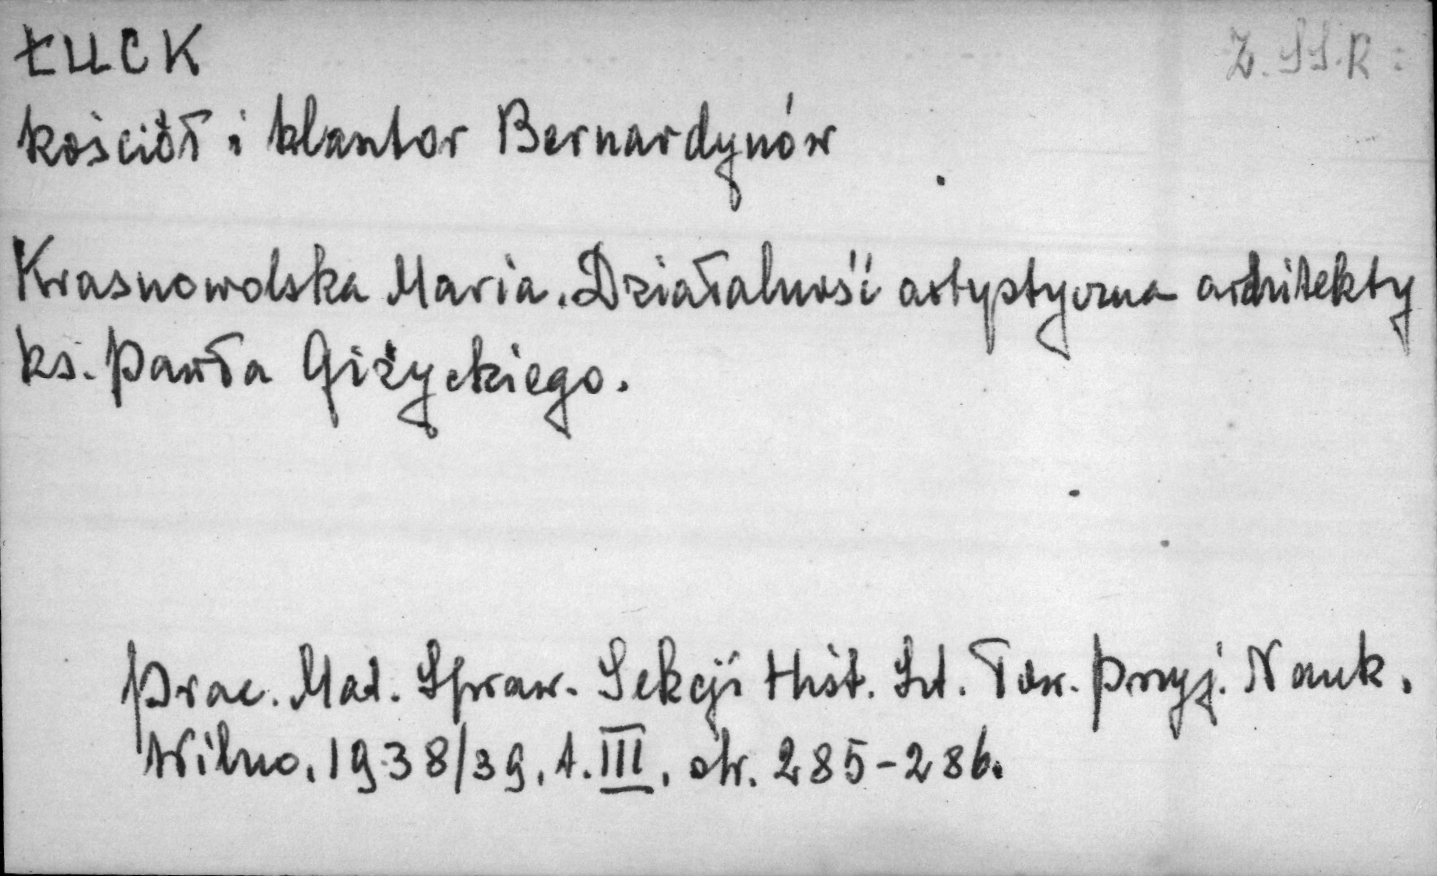 ŁUCK
Z.SS.R.
kościół i klasztor Bernardynów
Krasnowolska Maria. Działalność artystyczna architekty
ks. Pawła Giżyckiego.
Prac. Mat. Spraw. Sekcji Hist. Szt. Tow. Przyj. Nauk.
Wilno. 1938/39. t. III. str. 285-286.